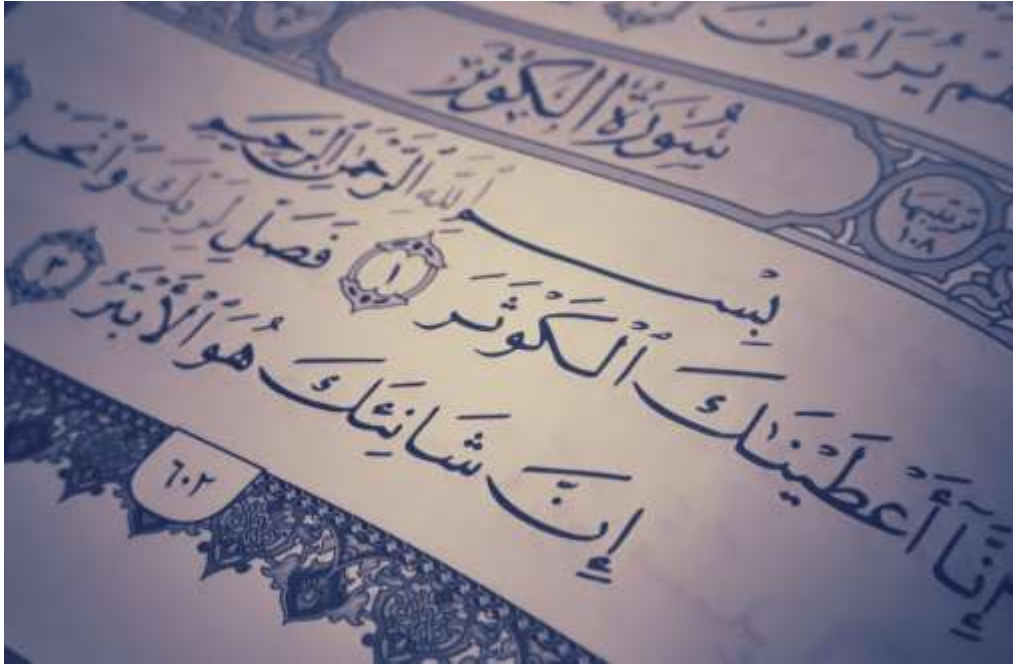 هُمْ يُرَآءُونَ
سُورَةُ الْكَوْثَرِ
تَرْتِيبُهَا ١٠٨
بِسْمِ ٱللَّهِ ٱلرَّحْمَٰنِ ٱلرَّحِيمِ
إِنَّآ أَعْطَيْنَٰكَ ٱلْكَوْثَرَ ١ فَصَلِّ لِرَبِّكَ وَٱنْحَرْ
إِنَّ شَانِئَكَ هُوَ ٱلْأَبْتَرُ ٣
٦٠٢